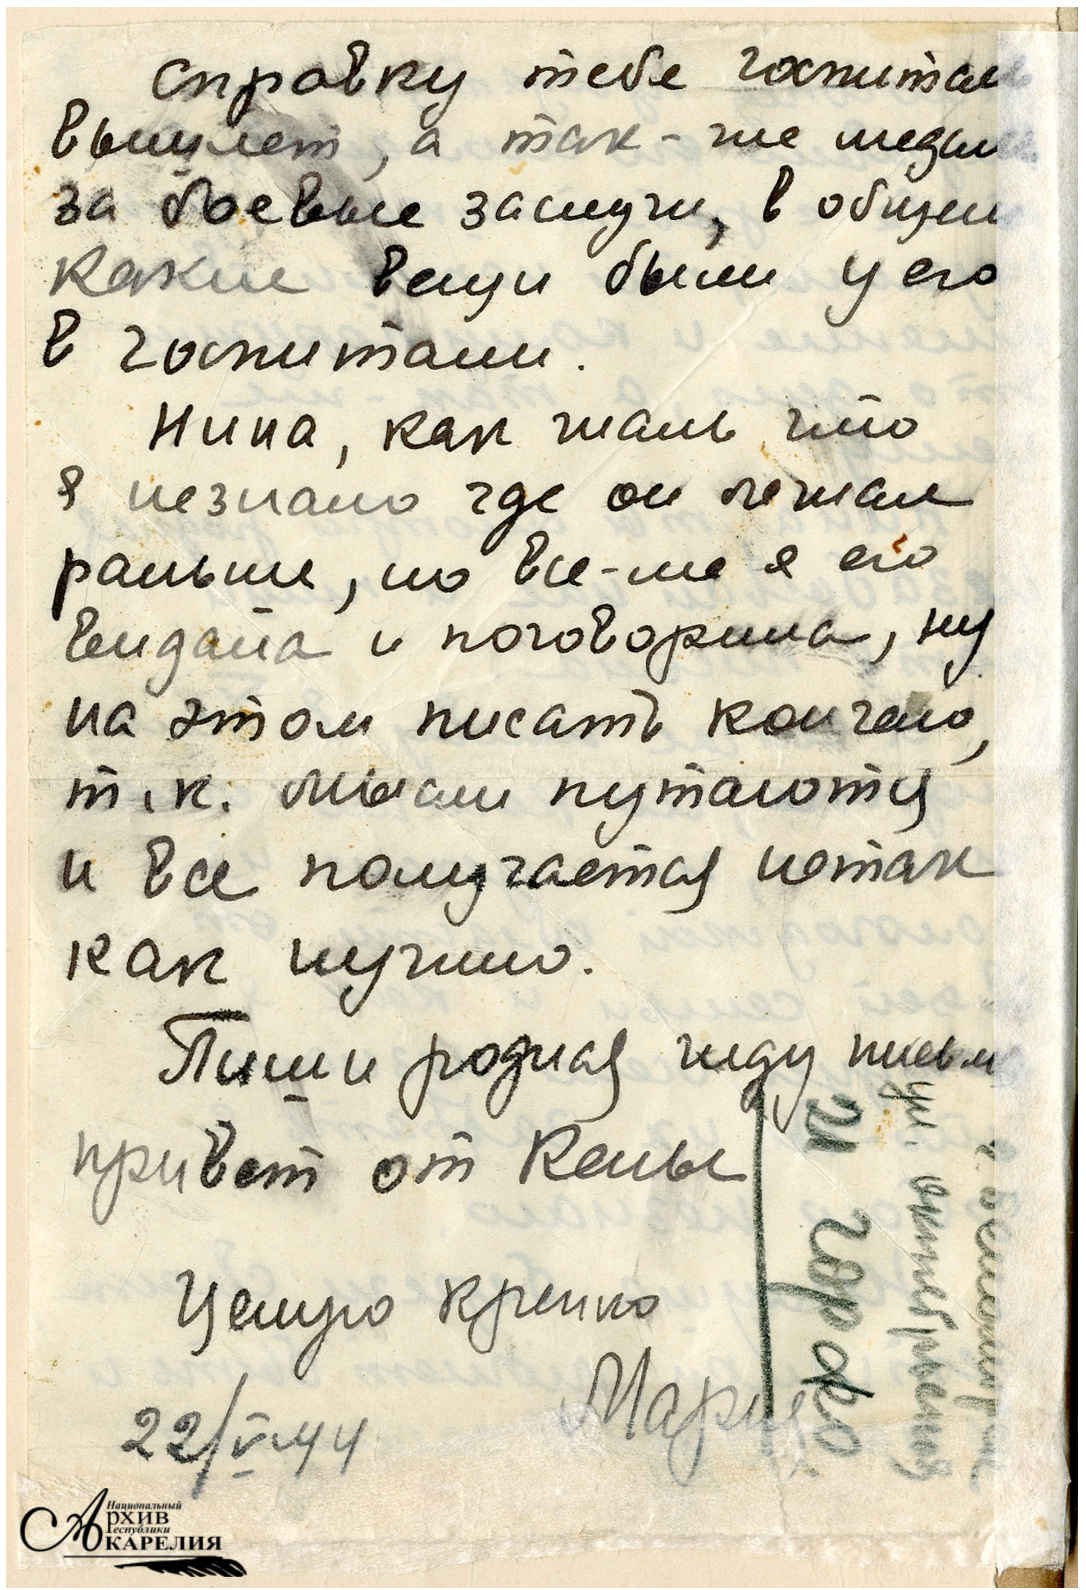 Справку тебе госпиталь
вышлет, а так-же медаль
за боевые заслуги, в общем
какие вещи были у его
в госпитали.
Нина, как жаль что
я незнало где он лежал
раньше, но все-же я его
видала и поговорила, ну
на этом писать кончаю,
т.к. мысли путаются
и все получается нетак
как нужно.
Пиши родная жду письм
привет от Кены
Целую крепко
Мария
22/V-44
21 горфо
ул. октябрьской
Национальный
Архив
Республики
Карелия